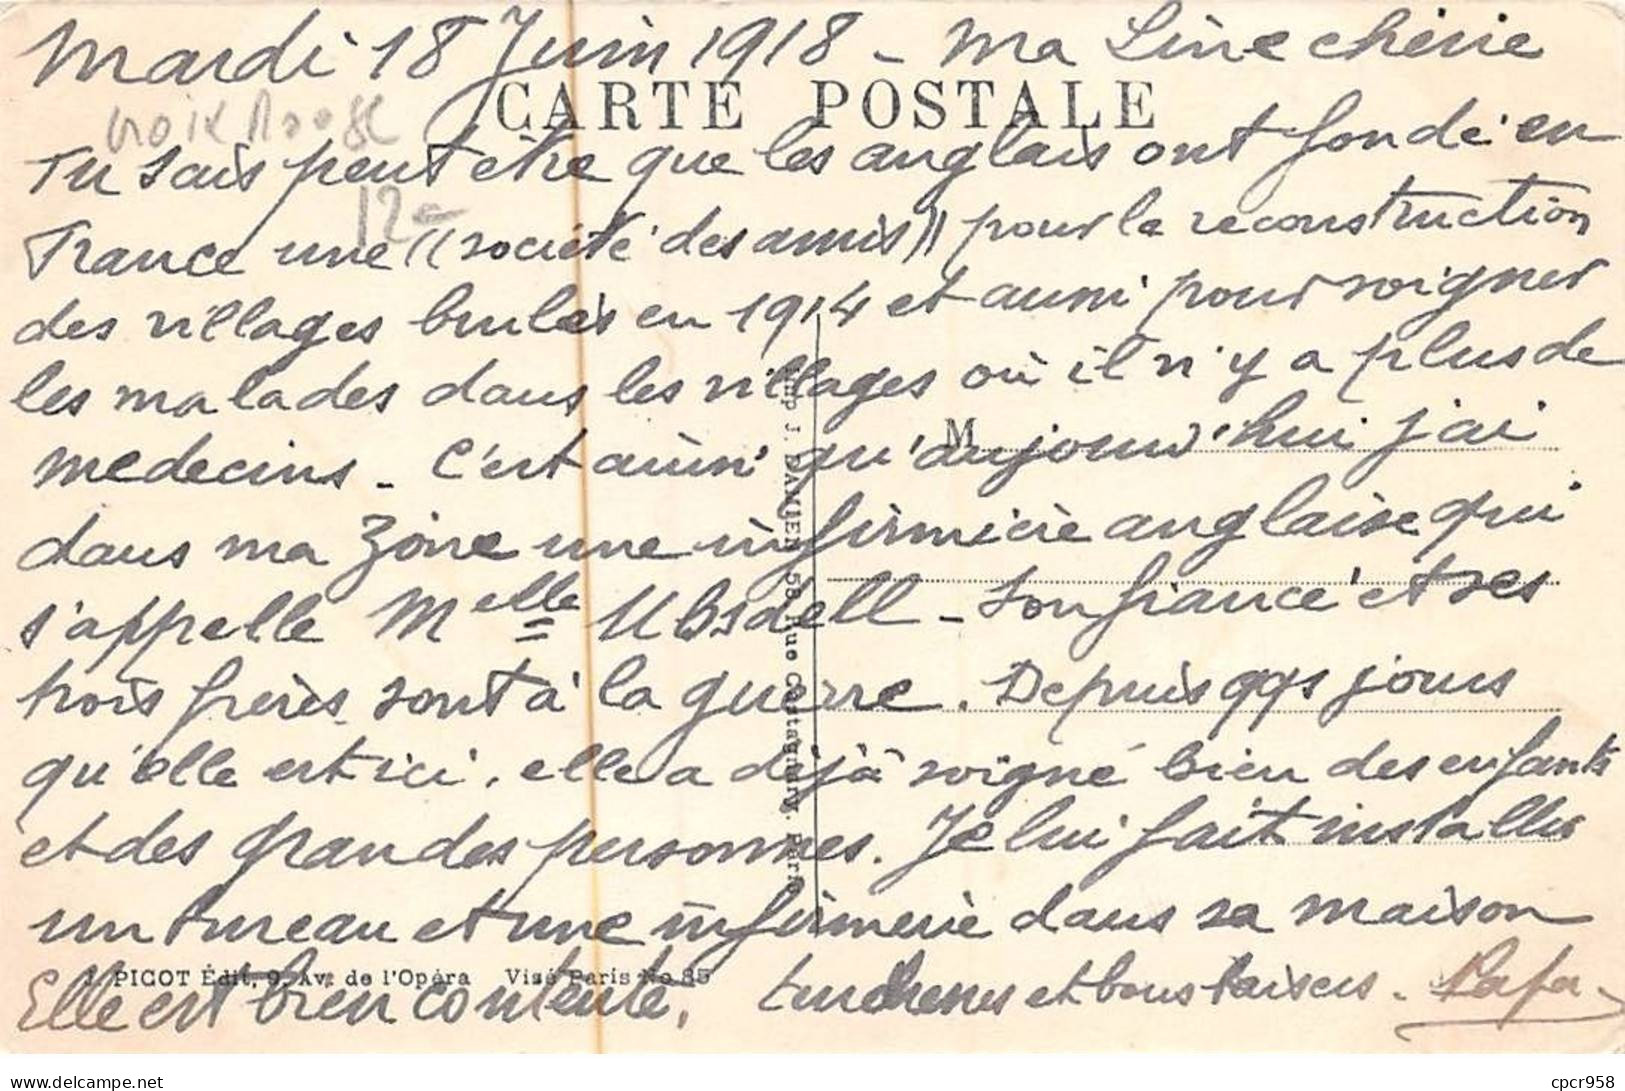 Mardi 18 Juin 1918 - Ma Line chérie
CARTE POSTALE
croix Rouge
Tu sais peut être que les anglais ont fondé en
12-
France une ((société des amis)) pour la reconstruction
des villages brulés en 1914 et aussi pour soigner
les malades dans les villages où il n'y a plus de
medecins - C'est ainsi qu'aujourd'hui j'ai
M
dans ma zône une infirmière anglaise qui
s'appelle Melle Ubsdell - Son fiancé et ses
trois frères sont à la guerre. Depuis qqs jours
qu'elle est ici, elle a déjà soigné bien des enfants
et des grandes personnes. Je lui fait installer
un bureau et une infirmerie dans sa maison
Elle est bien contente, tendresses et bons baisers. Papa.
J. PICOT Édit. 9, Av. de l'Opéra Visé Paris No 85
Imp J. DAMIEN 58, Rue Castagnary, Paris
cpcr958